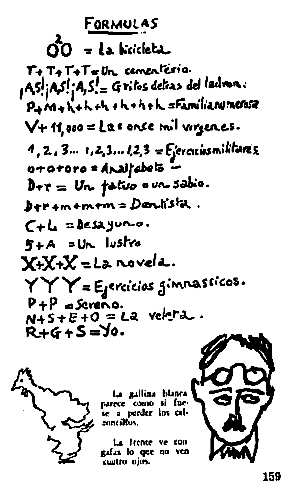 FORMULAS
O²O = La bicicleta
T+T+T+T=Un cementerio.
¡A,S!¡A,S!¡A,S!= Gritos detras del ladron.
P+M+h+h+h+h+h+h=Familia numerosa
V+11,000=Las once mil virgenes.
1,2,3... 1,2,3...1,2,3 =Ejercicios militares
o+o+o+o=Analfabeto —
D+r = Un fatuo o un sabio.
D+r+m+m+m=Dentista.
C+L =Desayuno.
5+A =Un lustro
X+X+X=La novela.
Y Y Y=Ejercicios gimnassicos.
P+P =Sereno.
N+S+E+O=La veleta.
R+G+S=Yo.
La gallina blanca
parece como si fue-
se a perder los cal-
zoncillos.
La frente ve con
gafas lo que no ven
cuatro ojos.
159